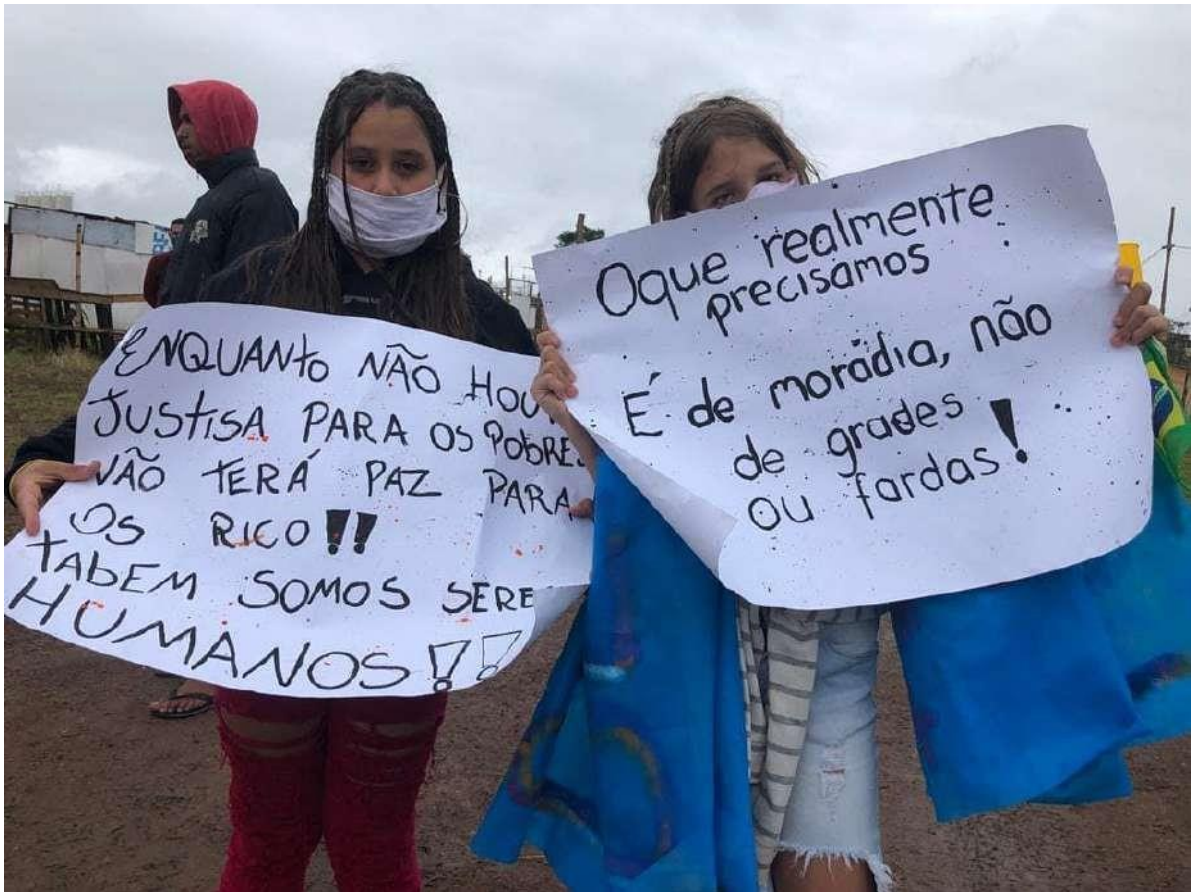 ENQUANTO NÃO HOU
JUSTISA PARA OS POBRES
NÃO TERÁ PAZ PARA
OS RICO!!
TABEM SOMOS SERE
HUMANOS!!
Oque realmente
precisamos
É de moradia, não
de grades
ou fardas!